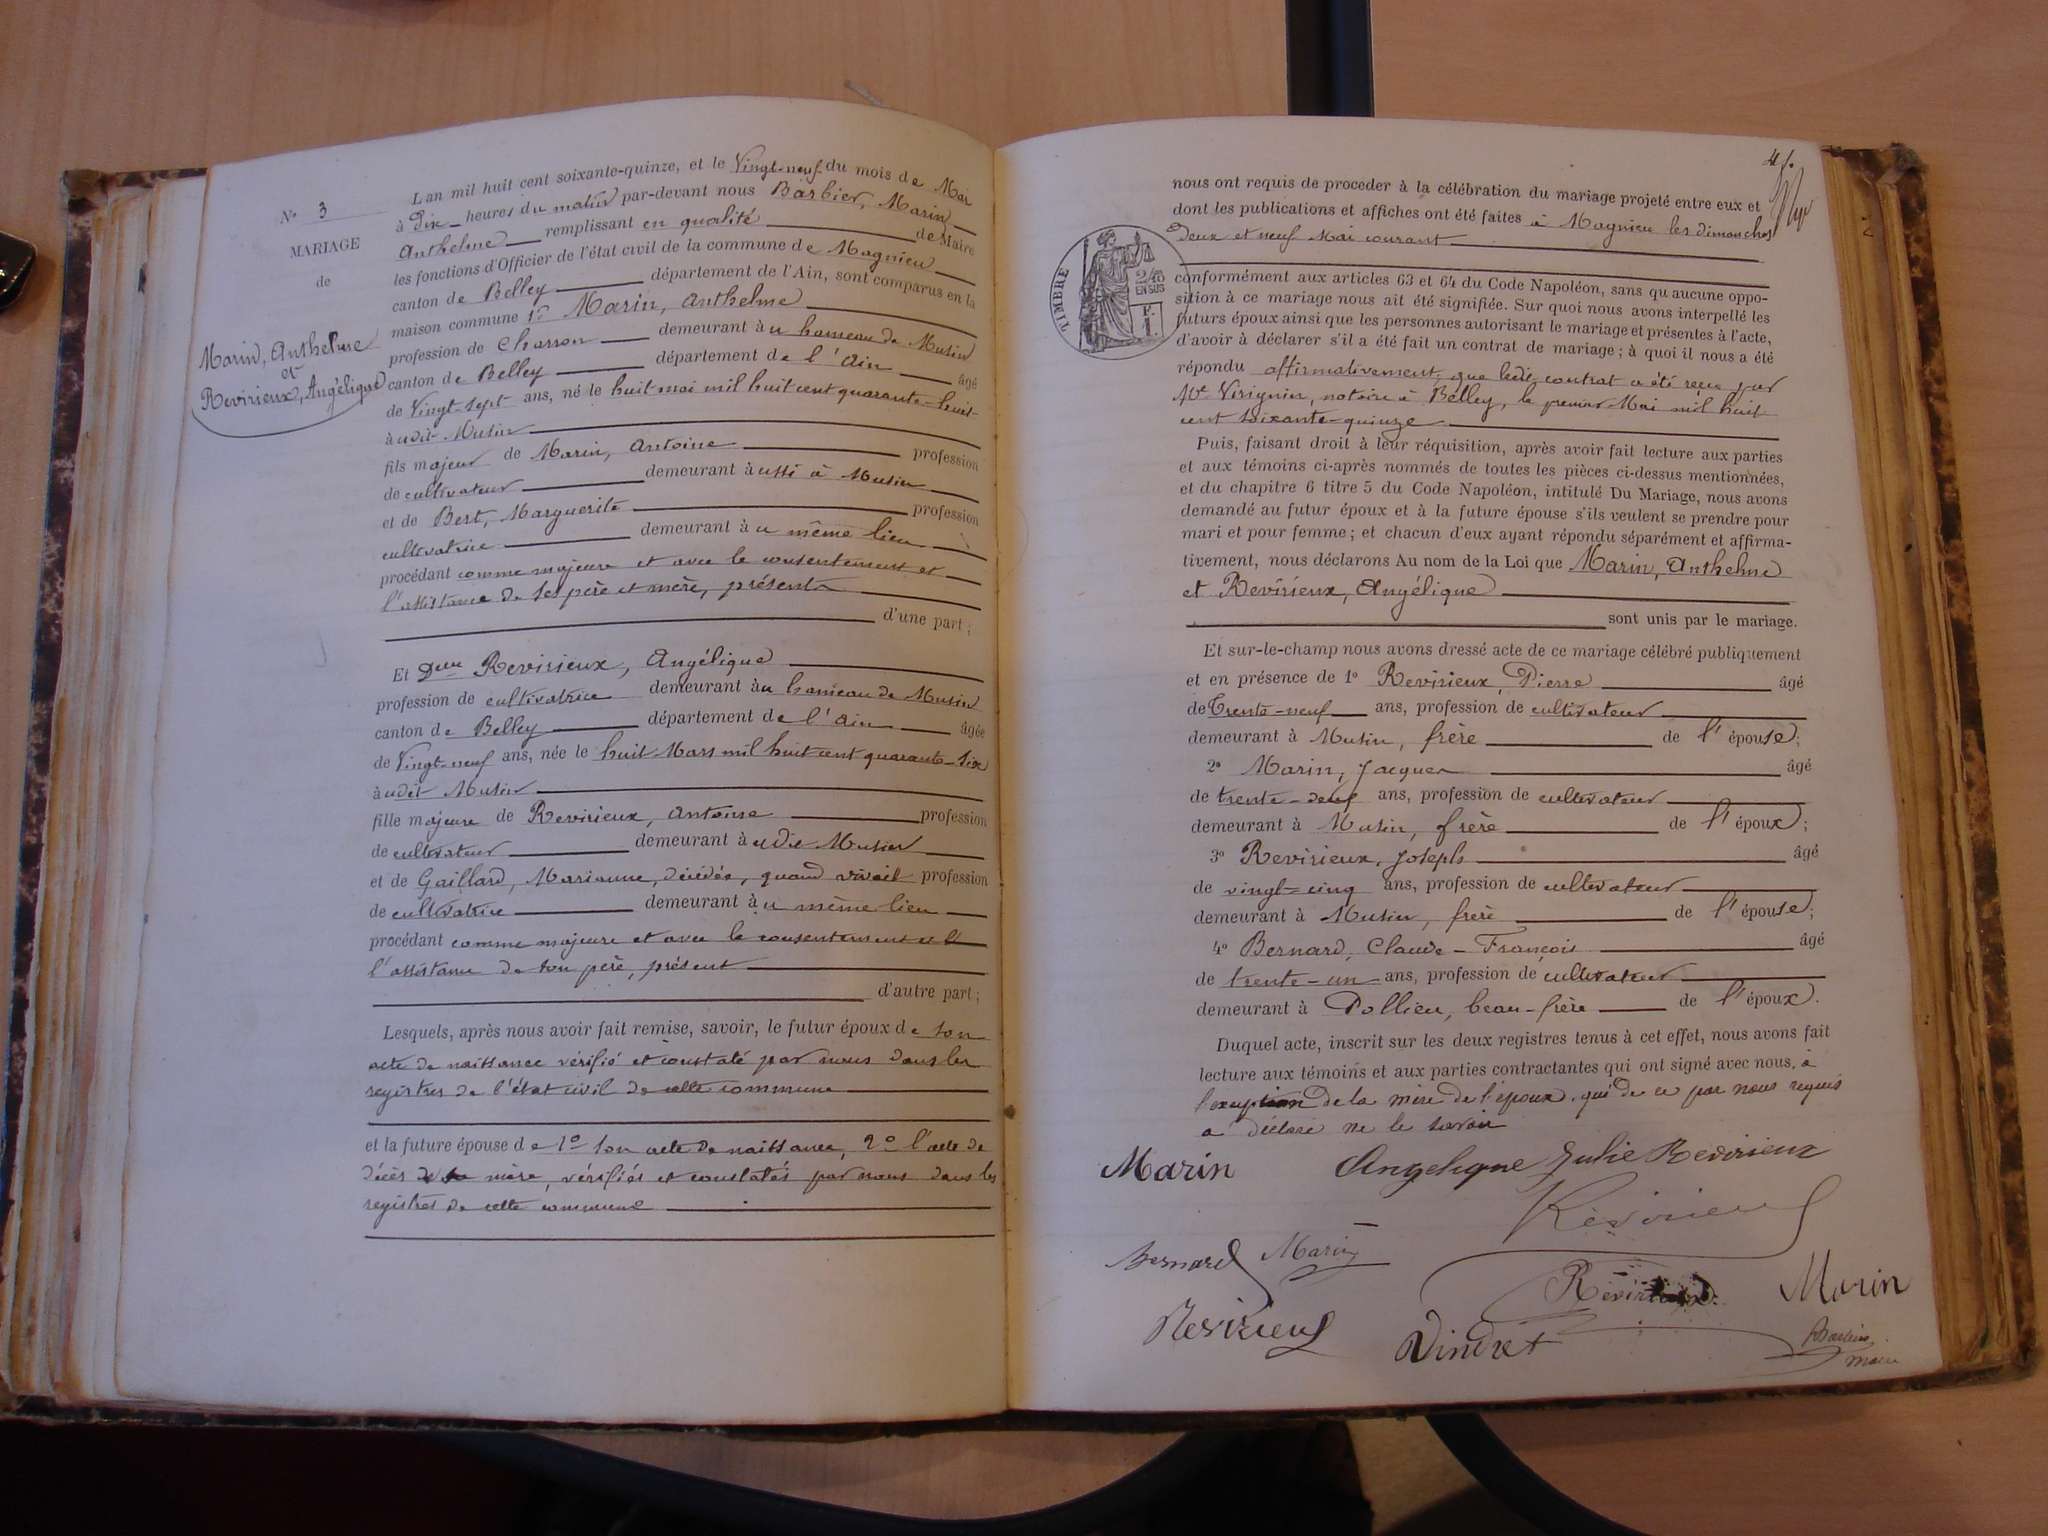 N° 3
MARIAGE
de
Marin, Anthelme
et
Revirieux, Angélique
L'an mil huit cent soixante-quinze, et le Vingt-neuf du mois de Mai
à Dix heures du matin par-devant nous Barbier, Marin
Anthelme remplissant en qualité de Maire
les fonctions d'Officier de l'état civil de la commune de Magnieu
canton de Belley département de l'Ain, sont comparus en la
maison commune 1° Marin, Anthelme
profession de Charron demeurant au hameau de Musin
canton de Belley département de l'Ain âgé
de Vingt-sept ans, né le huit mai mil huit cent quarante-huit
à udit Musin
fils majeur de Marin, Antoine profession
de cultivateur demeurant aussi à Musin
et de Bert, Marguerite profession
cultivatrice demeurant au même lieu
procédant comme majeure et avec le consentement et
l'assistance de ses père et mère, présents
d'une part;
Et Dlle Revirieux, Angélique
profession de cultivatrice demeurant au hameau de Musin
canton de Belley département de l'Ain âgée
de Vingt-neuf ans, née le huit Mars mil huit cent quarante-six
à udit Musin
fille majeure de Revirieux, Antoine profession
de cultivateur demeurant à udit Musin
et de Gaillard, Marianne, décédée, quand vivait profession
de cultivatrice demeurant au même lieu
procédant comme majeure et avec le consentement et l'
l'assistance de son père, présent
d'autre part;
Lesquels, après nous avoir fait remise, savoir, le futur époux de son
acte de naissance vérifié et constaté par nous dans les
registres de l'état civil de cette commune
et la future épouse de 1° son acte de naissance, 2° l'acte de
décès de sa mère, vérifiés et constatés par nous dans les
registres de cette commune
nous ont requis de proceder à la célébration du mariage projeté entre eux et
dont les publications et affiches ont été faites à Magnieu les dimanches
Deux et neuf Mai courant
TIMBRE
2/10
EN SUS
F.
1.
conformément aux articles 63 et 64 du Code Napoléon, sans qu'aucune oppo-
sition à ce mariage nous ait été signifiée. Sur quoi nous avons interpellé les
futurs époux ainsi que les personnes autorisant le mariage et présentes à l'acte,
d'avoir à déclarer s'il a été fait un contrat de mariage; à quoi il nous a été
répondu affirmativement, que ledit contrat a été reçu par
Me Virignin, notaire à Belley, le premier Mai mil huit
cent soixante-quinze
Puis, faisant droit à leur réquisition, après avoir fait lecture aux parties
et aux témoins ci-après nommés de toutes les pièces ci-dessus mentionnées,
et du chapitre 6 titre 5 du Code Napoléon, intitulé Du Mariage, nous avons
demandé au futur époux et à la future épouse s'ils veulent se prendre pour
mari et pour femme; et chacun d'eux ayant répondu séparément et affirma-
tivement, nous déclarons Au nom de la Loi que Marin, Anthelme
et Revirieux, Angélique
sont unis par le mariage.
Et sur-le-champ nous avons dressé acte de ce mariage célébré publiquement
et en présence de 1° Revirieux, Pierre âgé
de Trente-neuf ans, profession de cultivateur
demeurant à Musin, frère de l'épouse;
2° Marin, Jacques âgé
de trente-deux ans, profession de cultivateur
demeurant à Musin, frère de l'époux;
3° Revirieux, Joseph âgé
de vingt-cinq ans, profession de cultivateur
demeurant à Musin, frère de l'épouse;
4° Bernard, Claude-François âgé
de trente-un ans, profession de cultivateur
demeurant à Pollieu, beau-frère de l'époux.
Duquel acte, inscrit sur les deux registres tenus à cet effet, nous avons fait
lecture aux témoins et aux parties contractantes qui ont signé avec nous, à
l'exception de la mère de l'époux, qui de ce par nous requis
a déclaré ne le savoir
Marin Angelique Julie Revirieux
Revirieux
Bernard Marin
Revirieux Marin
Revirieux Dindet
Barbier
maire